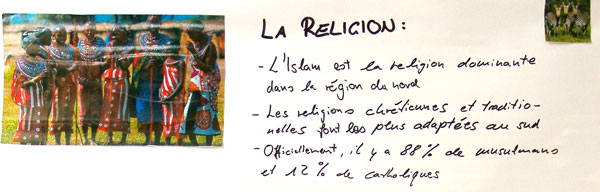 LA RELIGION:
- L'Islam est la religion dominante
dans la région du nord
- Les religions chrétiennes et traditio-
nelles sont les plus adaptées au sud
- Officiellement, il y a 88% de musulmans
et 12% de catholiques